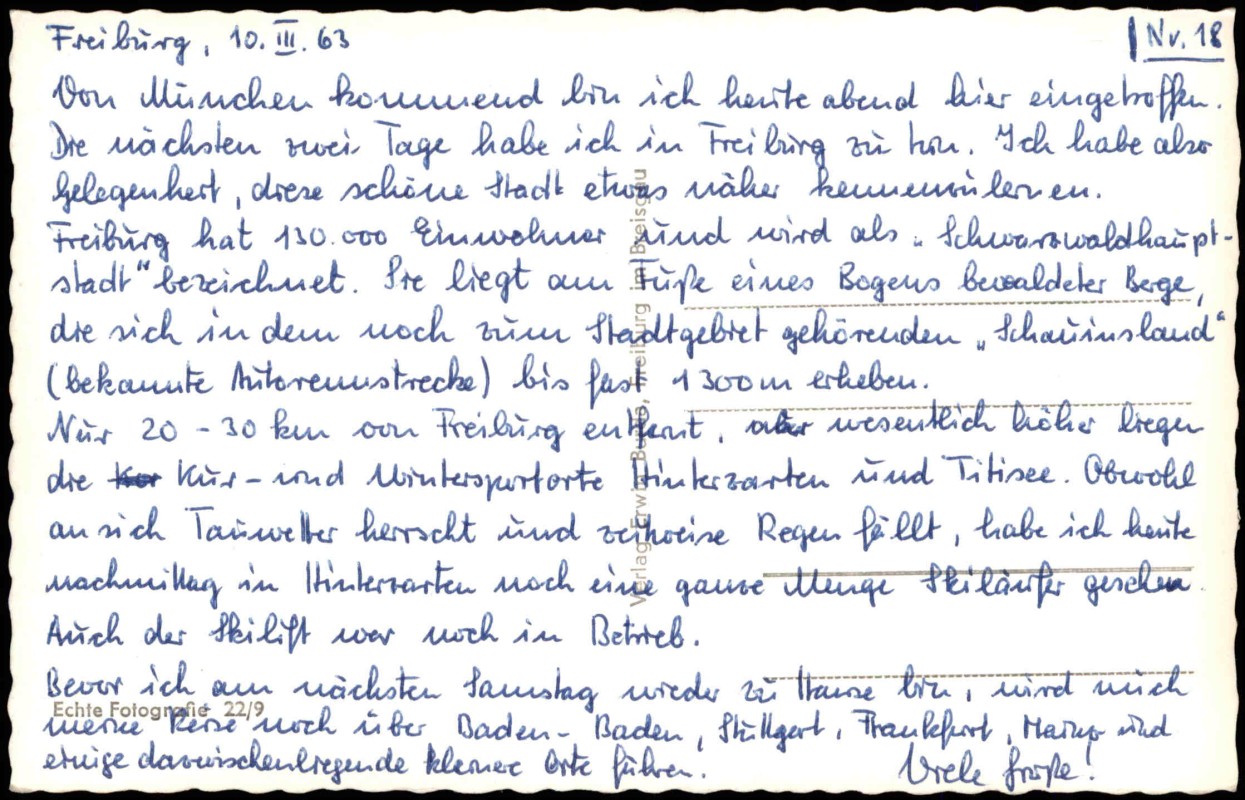 Freiburg, 10. III. 63
Nr. 18
Von München kommend bin ich heute abend hier eingetroffen.
Die nächsten zwei Tage habe ich in Freiburg zu tun. Ich habe also
Gelegenheit, diese schöne Stadt etwas näher kennenzulernen.
Freiburg hat 130.000 Einwohner und wird als „Schwarzwaldhaupt-
stadt" bezeichnet. Sie liegt am Fuße eines Bogens bewaldeter Berge,
die sich in dem noch zum Stadtgebiet gehörenden „Schauinsland"
(bekannte Autorennstrecke) bis fast 1300m erheben.
Nur 20 - 30 km von Freiburg entfernt, aber wesentlich höher liegen
die Kur- und Wintersportorte Hinterzarten und Titisee. Obwohl
an sich Tauwetter herrscht und zeitweise Regen fällt, habe ich heute
nachmittag in Hinterzarten noch eine ganze Menge Skiläufer gesehen.
Auch der Skilift war noch in Betrieb.
Bevor ich am nächsten Samstag wieder zu Hause bin, wird mich
meine Reise noch über Baden-Baden, Stuttgart, Frankfurt, Mainz und
einige dazwischenliegende kleinere Orte führen.
Viele Grüße!
Echte Fotografie 22/9
Verlag Erwin Freiburg im Breisgau